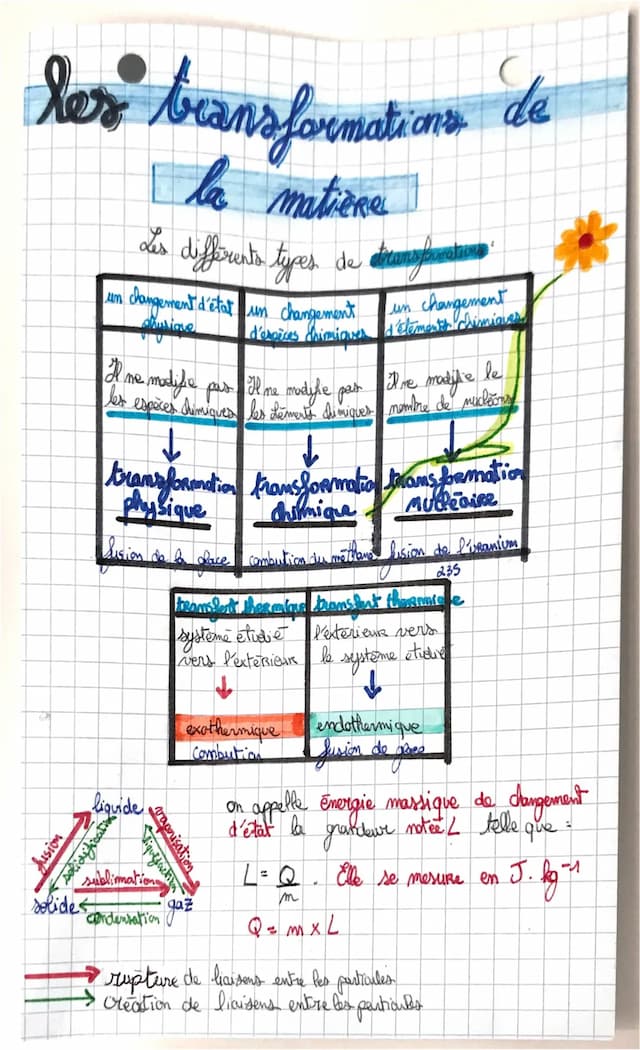 les transformations de
la matière
Les différents types de transformations:
un changement d'état
physique
un changement
d'espèces chimiques
un changement
d'éléments chimiques
Il ne modifie pas
les espèces chimiques
Il ne modifie pas
les éléments chimiques
Il ne modifie le
nombre de nucléons
transformation
physique
transformation
chimique
transformation
nucléaire
fusion de la glace
combution du méthane
fusion de l'uranium
235
transfert thermique
transfert thermique
système étudié
vers l'extérieur
l'extérieur vers
le système étudié
exothermique
combution
endothermique
fusion de glace
liquide
fusion
solidification
vaporisation
liquéfaction
sublimation
solide
gaz
condensation
on appelle énergie massique de changement
d'état la grandeur notée L telle que :
L = Q/m . Elle se mesure en J.kg⁻¹
Q = m x L
rupture de liaisons entre les particules
création de liaisons entre les particules